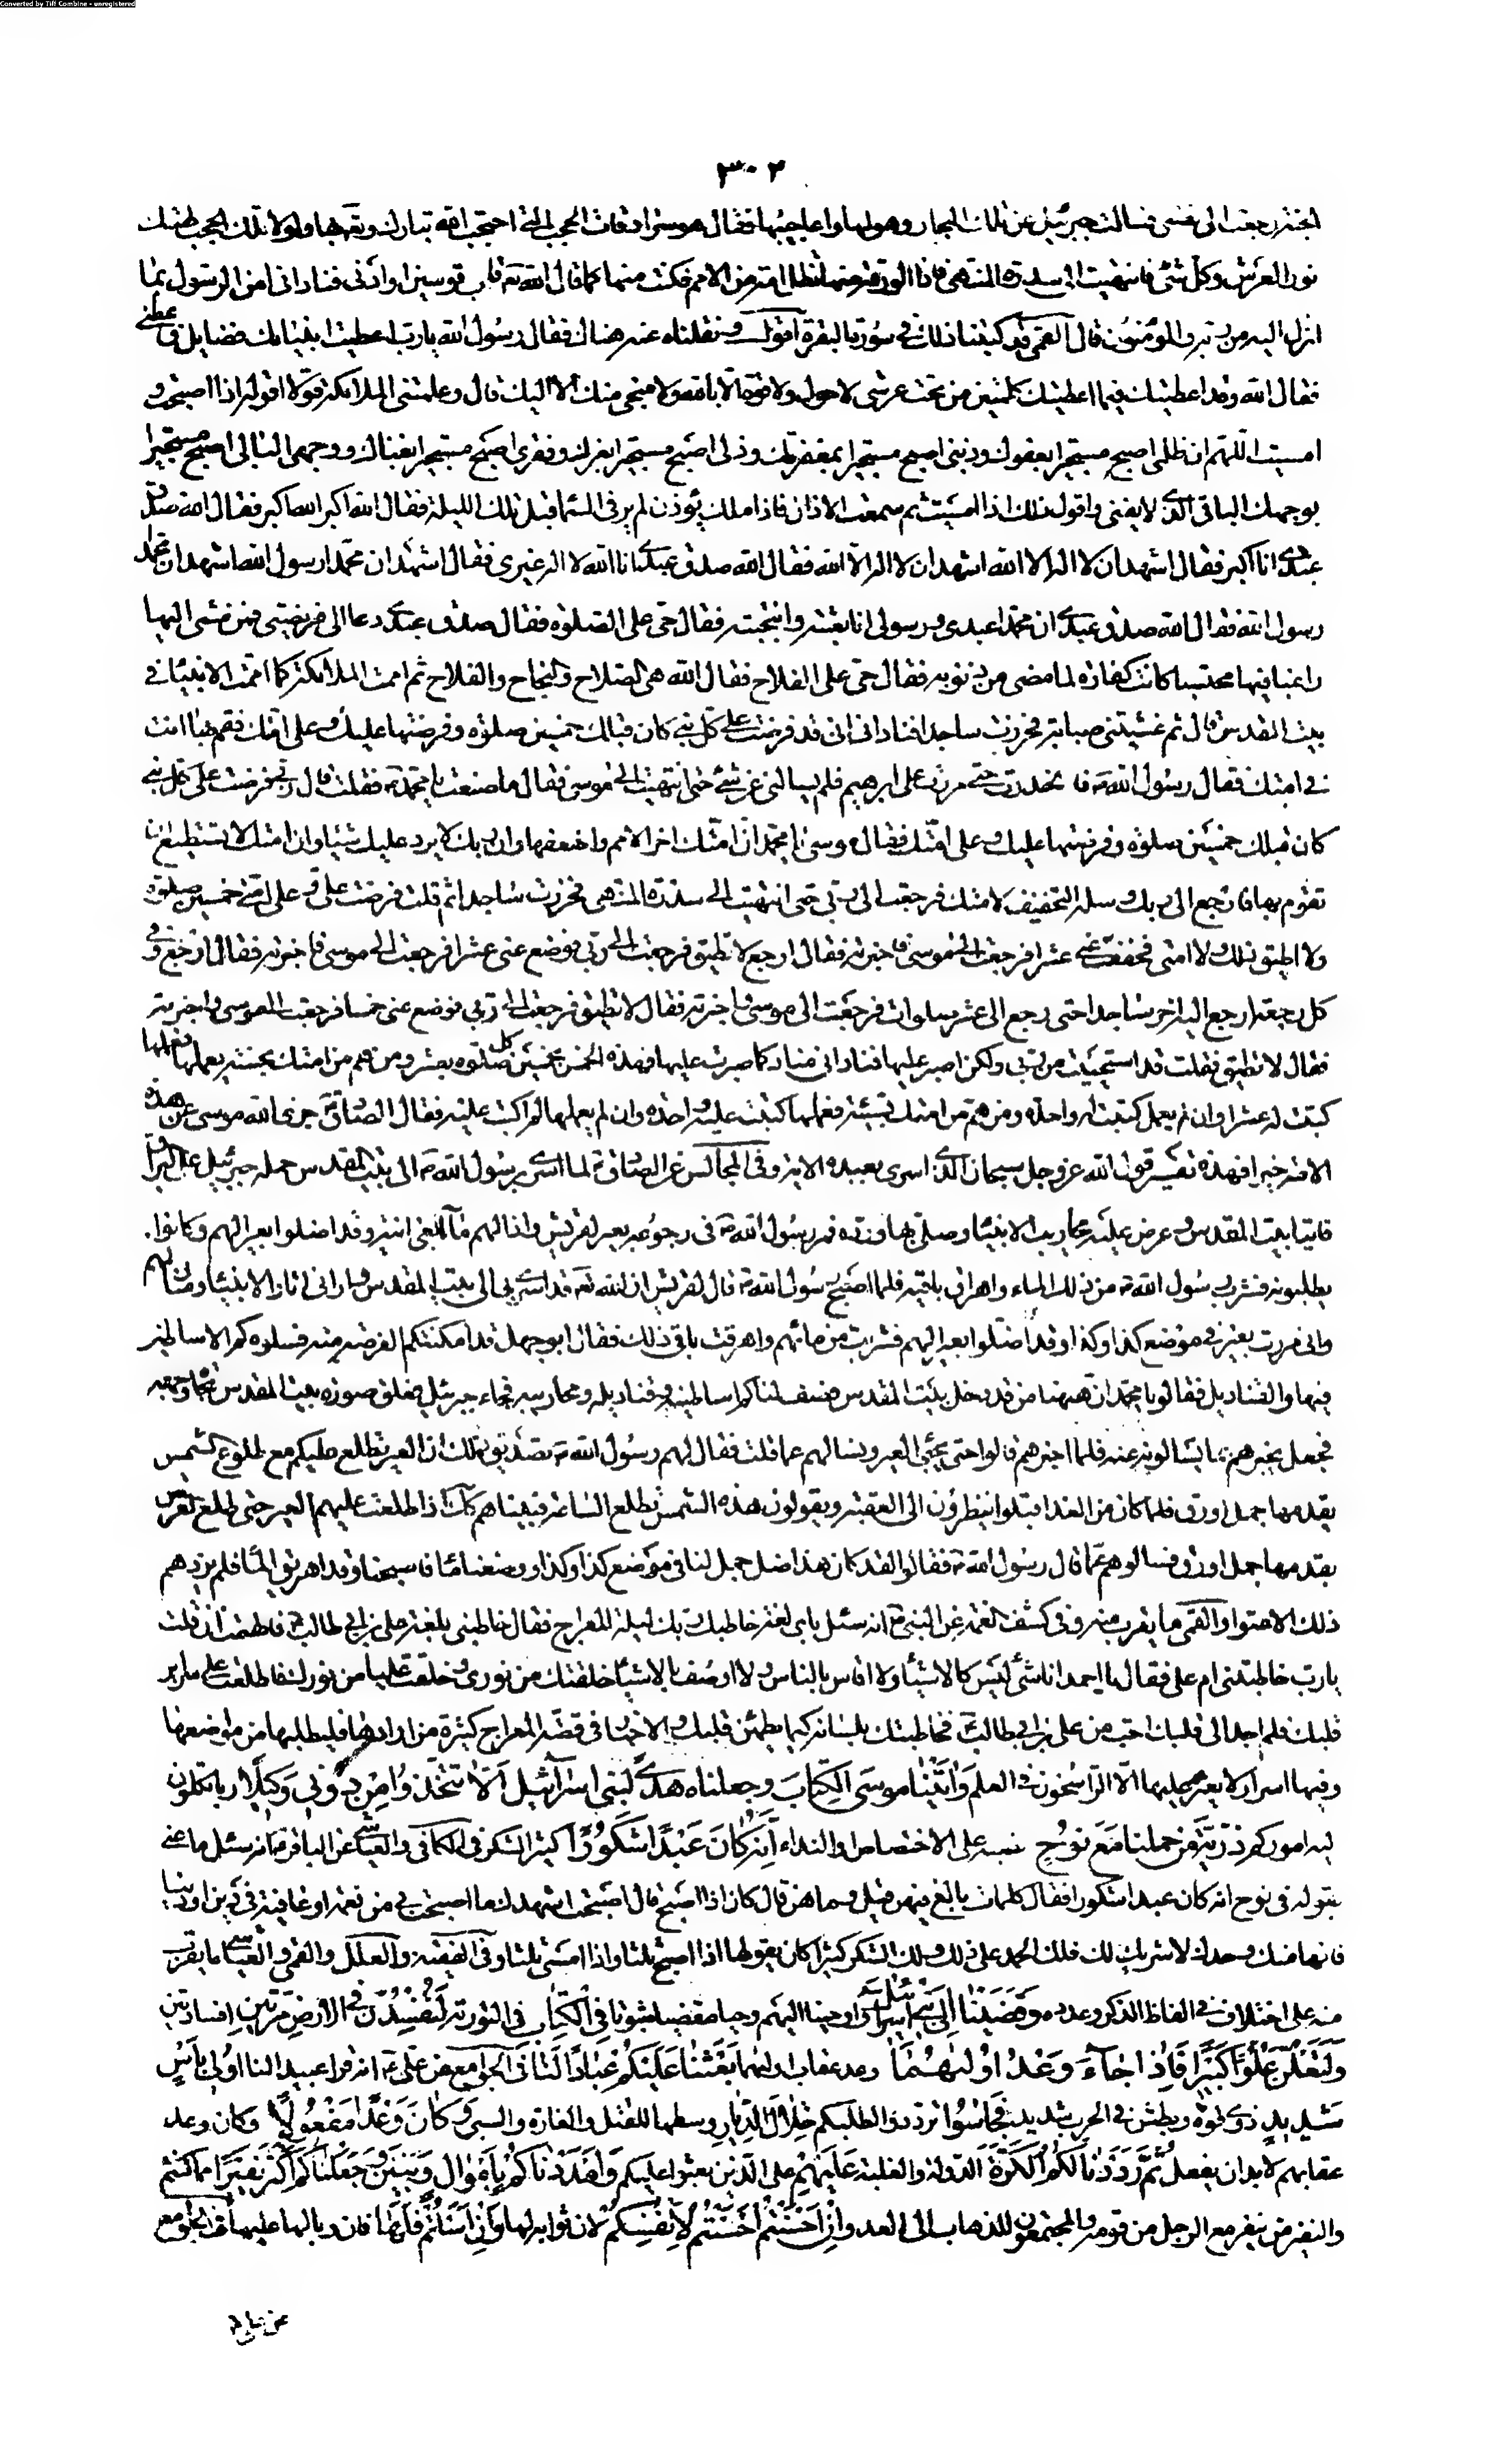 Converted by Tiff Combine - unregistered
٣٠٢
الجنة رجعت الى نفسى فسالت جبرئيل عن تلك البحار وهولها واعاجيبها فقال هو سرادقات الحجب التى احتجب الله تبارك وتعالى بها ولولا تلك الحجب لهتك
نور العرش وكل شئ فانتهيت الى سدرة المنتهى فاذا الورقة منها تظل امة من الامم فكنت منها كما قال الله تعالى قاب قوسين او ادنى فنادانى امن الرسول بما
انزل اليه من ربه والمؤمنون قال القمى قد كتبنا ذلك فى سورة البقرة اقول ونقلناه عنه هناك فقال رسول الله يا رب اعطيت انبيائك فضايل فاعطنى
فقال الله وقد اعطيتك فيما اعطيتك كلمتين من تحت عرشى لا حول ولا قوة الا بالله ولا منجى منك الا اليك قال وعلمتنى الملائكة قولا اقوله اذا اصبحت و
امسيت اللهم ان ظلمى اصبح مستجيرا بعفوك وذنبى اصبح مستجيرا بمغفرتك وذلى اصبح مستجيرا بعزك وفقرى اصبح مستجيرا بغناك ووجهى البالى اصبح مستجيرا
بوجهك الباقى الذى لا يفنى واقول ذلك اذا امسيت ثم سمعت الاذان فاذا ملك يؤذن لم ير فى السماء قبل تلك الليلة فقال الله اكبر الله اكبر فقال الله صدق
عبدى انا اكبر فقال اشهد ان لا اله الا الله اشهد ان لا اله الا الله فقال الله صدق عبدى انا الله لا اله غيرى فقال اشهد ان محمدا رسول الله اشهد ان محمدا
رسول الله فقال الله صدق عبدى ان محمدا عبدى ورسولى انا بعثته وانتجبته فقال حى على الصلوة فقال صدق عبدى دعا الى فريضتى فمن مشى اليها
راغبا فيها محتسبا كانت كفارة لما مضى من ذنوبه فقال حى على الفلاح فقال الله هى الصلاح والنجاح والفلاح ثم اممت الملائكة كما اممت الانبياء فى
بيت المقدس قال ثم غشيتنى صبابة فخررت ساجدا فنادانى انى قد فرضت على كل نبى كان قبلك خمسين صلوة وفرضتها عليك وعلى امتك فقم بها انت
فى امتك فقال رسول الله فانحدرت حتى مررت على ابرهيم فلم يسالنى عن شئ حتى انتهيت الى موسى فقال ما صنعت يا محمد فقلت قال ربى فرضت على كل نبى
كان قبلك خمسين صلوة وفرضتها عليك وعلى امتك فقال موسى يا محمد ان امتك اخر الامم واضعفها وان ربك لا يرد عليك شيئا وان امتك لا تستطيع ان
تقوم بها فارجع الى ربك وسله التخفيف لامتك فرجعت الى ربى حتى انتهيت الى سدرة المنتهى فخررت ساجدا ثم قلت فرضت على وعلى امتى خمسين صلوة
ولا اطيق ذلك ولا امتى فخفف عنى فوضع عنى عشرا فرجعت الى موسى فاخبرته فقال ارجع لا تطيق فرجعت الى ربى فوضع عنى عشرا فرجعت الى موسى فاخبرته فقال ارجع وفى
كل رجعة ارجع اليه اخر ساجدا حتى رجع الى عشر صلوات فرجعت الى موسى فاخبرته فقال لا تطيق فرجعت الى ربى فوضع عنى خمسا فرجعت الى موسى واخبرته
فقال لا تطيق فقلت قد استحييت من ربى ولكن اصبر عليها فنادانى مناد كما صبرت عليها فهذه الخمس بخمسين كل صلوة بعشر ومن هم من امتك بحسنة يعملها فعملها
كتبت له عشرا وان لم يعمل كتبت له واحدة ومن هم من امتك بسيئة فعملها كتبت عليه واحدة وان لم يعملها لم اكتب عليه فقال الصادق جزى الله موسى عن هذه
الامة خيرا فهذه تفسير قول الله عز وجل سبحان الذى اسرى بعبده الاية وفى المجالس عن الصادق لما اسرى برسول الله الى بيت المقدس حمله جبرئيل على البراق
فاتيا بيت المقدس وعرض عليه محاريب الانبياء وصلى بها ورده فمر رسول الله فى رجوعه بعير لقريش واذا لهم ماء فى انية وقد اضلوا بعيرا لهم وكانوا
يطلبونه فشرب رسول الله من ذلك الماء واهرق باقيه فلما اصبح رسول الله قال لقريش ان الله تعالى قد اسرى بى الى بيت المقدس وارانى اثار الانبياء ومنازلهم
وانى مررت بعير فى موضع كذا وكذا وقد اضلوا بعيرا لهم فشربت من مائهم واهرقت باقى ذلك فقال ابو جهل قد امكنتكم الفرصة منه فسلوه كم الاساطين
فيها والقناديل فقالوا يا محمد ان ههنا من قد دخل بيت المقدس فصف لنا كم اساطينه وقناديله ومحاريبه فجاء جبرئيل فعلق صورة بيت المقدس تجاه وجهه
فجعل يخبرهم بما يسالونه عنه فلما اخبرهم قالوا حتى يجئ العير ونسالهم عما قلت فقال لهم رسول الله تصديق ذلك ان العير تطلع عليكم مع طلوع الشمس
يقدمها جمل اورق فلما كان من الغد اقبلوا ينظرون الى العقبة ويقولون هذه الشمس تطلع الساعة فبيناهم كذلك اذا طلعت عليهم العير حين طلع القرص
يقدمها جمل اورق فسالوهم عما قال رسول الله فقالوا لقد كان هذا ضل جمل لنا فى موضع كذا وكذا ووضعنا ماء فاصبحنا وقد اهريق الماء فلم يزدهم
ذلك الا عتوا والقمى ما يقرب منه وفى كشف الغمة عن النبى انه سئل باى لغة خاطبك ربك ليلة المعراج فقال خاطبنى بلغة على بن ابى طالب فالهمنى ان قلت
يا رب خاطبتنى ام على فقال يا احمد انا شئ ليس كالاشياء ولا اقاس بالناس ولا اوصف بالاشياء خلقتك من نورى وخلقت عليا من نورك فاطلعت على سراير
قلبك فلم اجد الى قلبك احب من على بن ابى طالب فخاطبتك بلسانه كيما يطمئن قلبك والاخبار فى قصة المعراج كثيرة من ارادها فليطلبها من مواضعها
وفيها اسرار لا يعثر عليها الا الراسخون فى العلم وَاتَيْنَا مُوسَى الْكِتَابَ وجعلناه هدى لبنى اسرائيل اَلَّا تَتَّخِذُوا مِنْ دُونِى وَكِيلًا ربا تكلون
اليه اموركم ذُرِّيَّةَ مَنْ حَمَلْنَا مَعَ نُوحٍ نصبه على الاختصاص او النداء اِنَّهُ كَانَ عَبْدًا شَكُورًا كثير الشكر فى الكافى والعياشى عن الباقر انه سئل ما عنى
بقوله فى نوح انه كان عبدا شكورا فقال كلمات بالغ فيهن قيل وما هن قال كان اذا اصبح قال اصبحت اشهدك ما اصبحت بى من نعمة او عافية فى دين او دنيا
فانها منك وحدك لا شريك لك فلك الحمد على ذلك ولك الشكر كثيرا كان يقولها اذا اصبح ثلثا واذا امسى ثلثا وفى الفقيه والعلل والقمى والعياشى ما يقرب
منه على اختلاف فى الفاظ الذكر وعدده وَقَضَيْنَا اِلَى بَنِى اِسْرَائِيلَ واوحينا اليهم وحيا مقضيا مبتوتا فِى الْكِتَابِ فى التورية لَتُفْسِدُنَّ فِى الْاَرْضِ مَرَّتَيْنِ افسادتين
وَلَتَعْلُنَّ عُلُوًّا كَبِيرًا فَاِذَا جَاءَ وَعْدُ اُولَيهُمَا وعد عقاب اوليهما بَعَثْنَا عَلَيْكُمْ عِبَادًا لَنَا فى الجوامع عن على انه قرا عبيدا لنا اُولِى بَاْسٍ
شَدِيدٍ ذوى قوة وبطش فى الحرب شديد فَجَاسُوا ترددوا لطلبكم خِلَالَ الدِّيَارِ وسطها للقتل والغارة والسبى وَكَانَ وَعْدًا مَفْعُولًا وكان وعد
عقابهم لا بد ان يفعل ثُمَّ رَدَدْنَا لَكُمُ الْكَرَّةَ الدولة والغلبة عَلَيْهِمْ على الذين بعثوا عليكم وَاَمْدَدْنَاكُمْ بِاَمْوَالٍ وَبَنِينَ وَجَعَلْنَاكُمْ اَكْثَرَ نَفِيرًا مما كنتم
والنفير من ينفر مع الرجل من قومه والمجتمعون للذهاب الى العدو اِنْ اَحْسَنْتُمْ اَحْسَنْتُمْ لِاَنْفُسِكُمْ لان ثوابه لها وَاِنْ اَسَاْتُمْ فَلَهَا فان وبالها عليها فى الجوامع
عن على